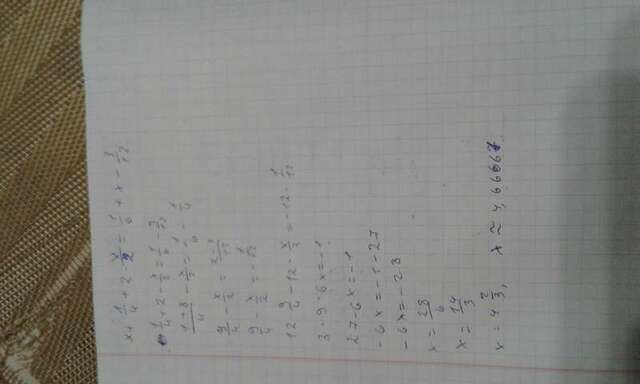 x + 1/4 + 2 - x/2 = 1/6 + x - 3/12
1/4 + 2 - x/2 = 1/6 - 3/12
(1+8)/4 - x/2 = 1/6 - 1/4
9/4 - x/2 = (2-3)/12
9/4 - x/2 = -1/12
12 · 9/4 - 12 · x/2 = -12 · 1/12
3 · 9 - 6x = -1
27 - 6x = -1
-6x = -1 - 27
-6x = -28
x = 28/6
x = 14/3
x = 4 2/3, x ≈ 4,66667